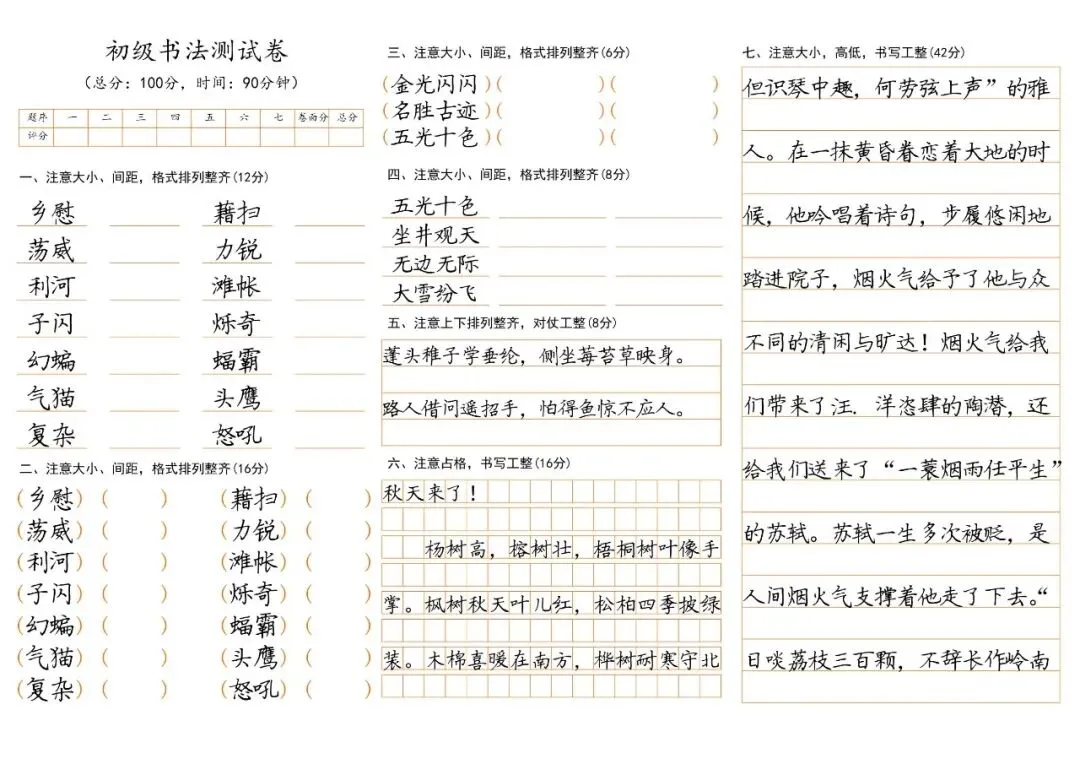 初级书法测试卷
（总分：100分，时间：90分钟）
题序 一 二 三 四 五 六 七 卷面分 总分
评分
一、注意大小、间距，格式排列整齐(12分)
乡慰 藉扫
荡威 力锐
利河 滩帐
子闪 烁奇
幻蝙 蝠霸
气猫 头鹰
复杂 怒吼
二、注意大小、间距，格式排列整齐(16分)
（乡慰）（ ） （藉扫）（ ）
（荡威）（ ） （力锐）（ ）
（利河）（ ） （滩帐）（ ）
（子闪）（ ） （烁奇）（ ）
（幻蝙）（ ） （蝠霸）（ ）
（气猫）（ ） （头鹰）（ ）
（复杂）（ ） （怒吼）（ ）
三、注意大小、间距，格式排列整齐(6分)
（金光闪闪）（ ）（ ）
（名胜古迹）（ ）（ ）
（五光十色）（ ）（ ）
四、注意大小、间距，格式排列整齐(8分)
五光十色
坐井观天
无边无际
大雪纷飞
五、注意上下排列整齐，对仗工整(8分)
蓬头稚子学垂纶，侧坐莓苔草映身。
路人借问遥招手，怕得鱼惊不应人。
六、注意占格，书写工整(16分)
秋天来了！
杨树高，榕树壮，梧桐树叶像手
掌。枫树秋天叶儿红，松柏四季披绿
装。木棉喜暖在南方，桦树耐寒守北
七、注意大小，高低，书写工整(42分)
但识琴中趣，何劳弦上声”的雅
人。在一抹黄昏眷恋着大地的时
候，他吟唱着诗句，步履悠闲地
踏进院子，烟火气给予了他与众
不同的清闲与旷达！烟火气给我
们带来了汪．洋恣肆的陶潜，还
给我们送来了“一蓑烟雨任平生”
的苏轼。苏轼一生多次被贬，是
人间烟火气支撑着他走了下去。“
日啖荔枝三百颗，不辞长作岭南